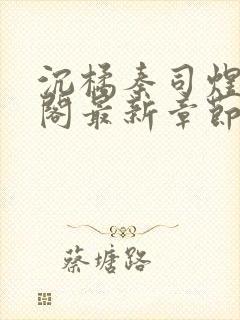 沉橘秦司煌
阁最新章節
蔡塘路